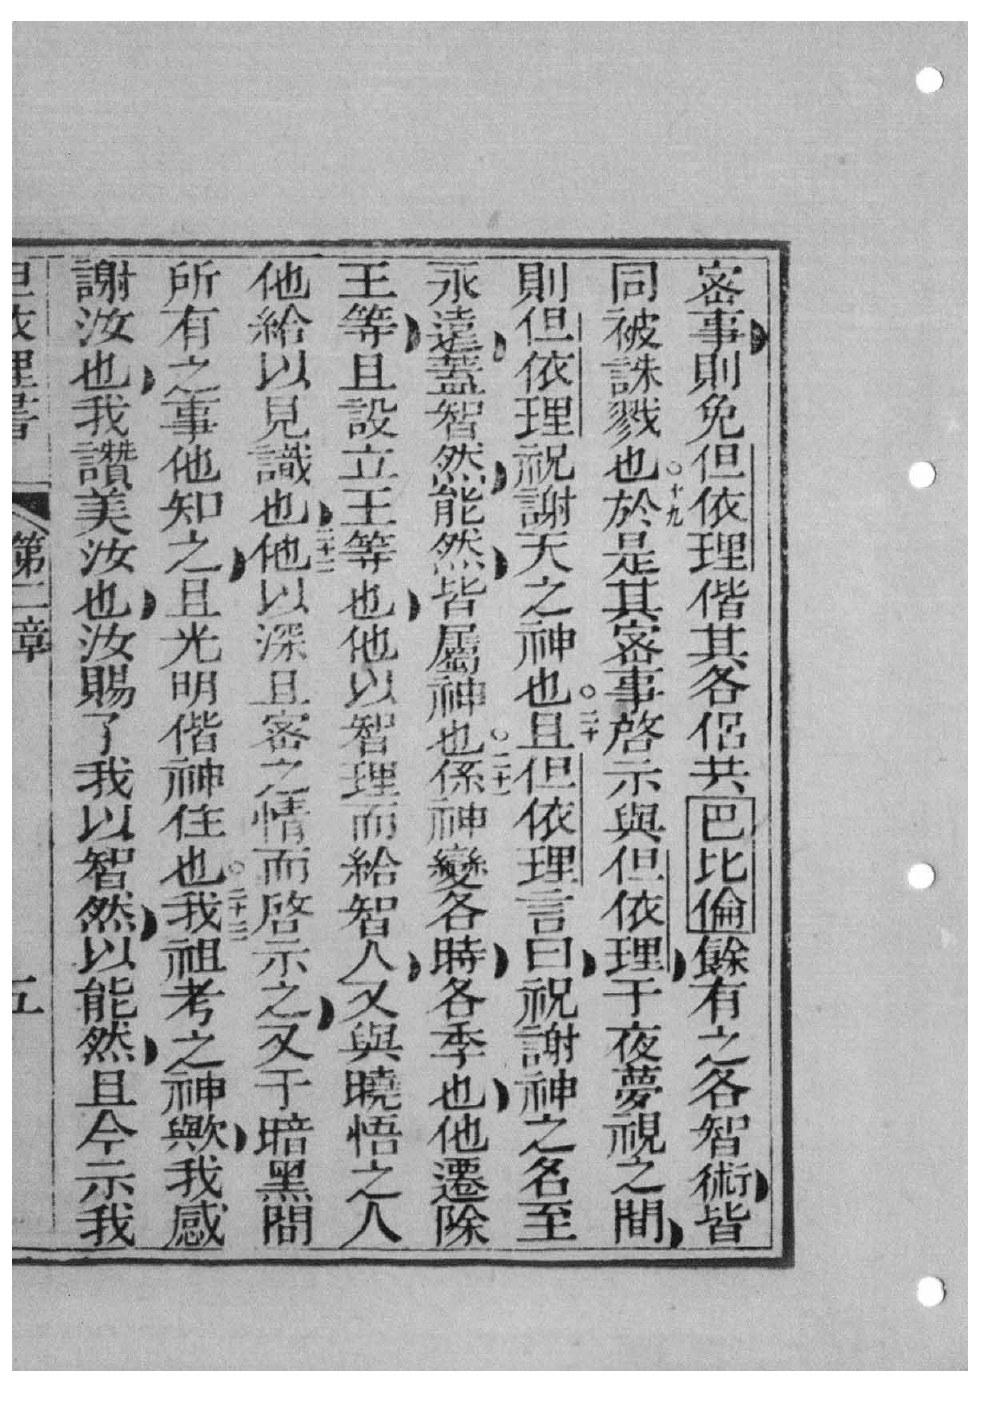 密事則免但依理偕其各侶共巴比倫餘有之各智術皆
同被誅戮也○十九於是其密事啓示與但依理于夜夢視之間
則但依理祝謝天之神也○二十且但依理言曰祝謝神之名至
永遠蓋智然能然皆屬神也○二十一係神變各時各季也他遷除
王等且設立王等也他以智理而給智人又與曉悟之人
他給以見識也二十二他以深且密之情而啓示之又于暗黑間
所有之事他知之且光明偕神住也○二十三我祖考之神歟我感
謝汝也我讚美汝也汝賜了我以智然以能然且今示我
但依理書 第二章 五